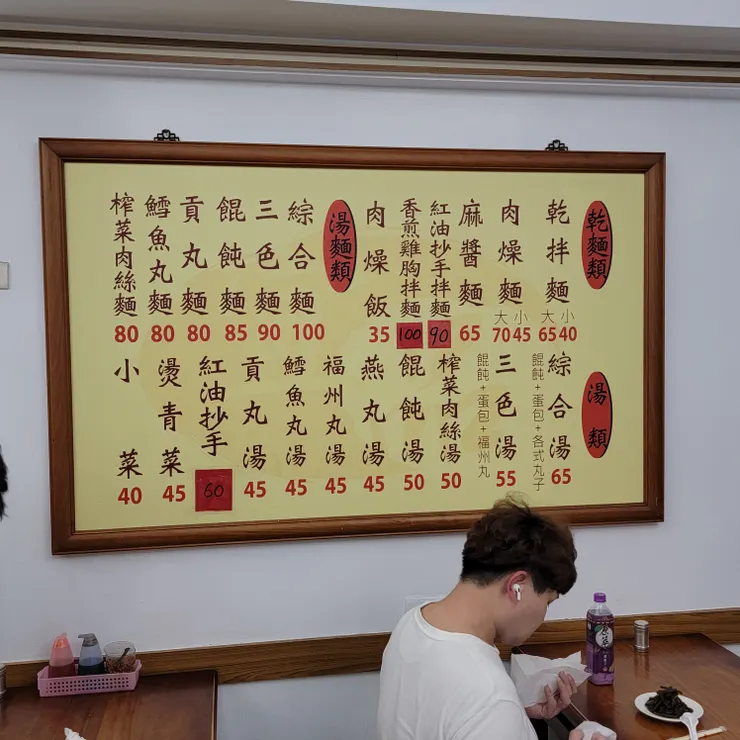 乾麵類
乾拌麵 大65 小40
肉燥麵 大70 小45
麻醬麵 65
紅油抄手拌麵 90
香煎雞胸拌麵 100
肉燥飯 35
湯麵類
綜合麵 100
三色麵 90
餛飩麵 85
貢丸麵 80
鱈魚丸麵 80
榨菜肉絲麵 80
湯類
綜合湯 65
餛飩+蛋包+各式丸子
三色湯 55
餛飩+蛋包+福州丸
榨菜肉絲湯 50
餛飩湯 50
燕丸湯 45
福州丸湯 45
鱈魚丸湯 45
貢丸湯 45
紅油抄手 60
燙青菜 45
小菜 40